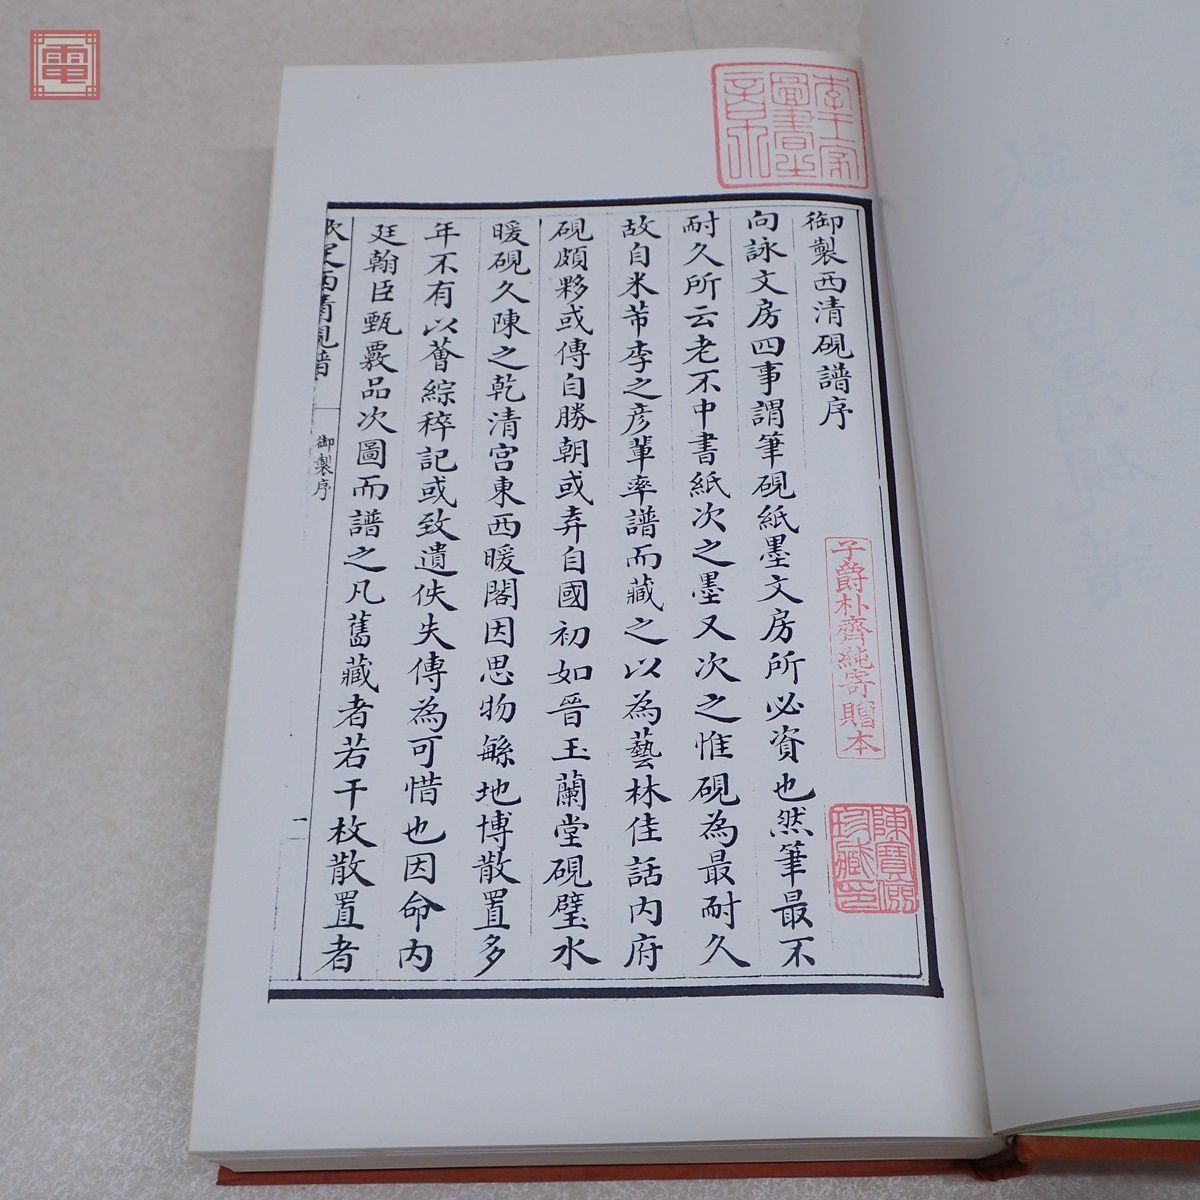 電
李王家
圖書
御製西清硯譜序
向詠文房四事謂筆硯紙墨文房所必資也然筆最不
耐久所云老不中書紙次之墨又次之惟硯為最耐久
故自米芾李之彦輩率譜而藏之以為藝林佳話内府
硯頗夥或傳自勝朝或弆自國初如晉玉蘭堂硯璧水
暖硯久陳之乾清宫東西暖閣因思物緐地博散置多
年不有以薈綜稡記或致遺佚失傳為可惜也因命内
廷翰臣甄覈品次圖而譜之凡舊藏者若干枚散置者
欽定西清硯譜
御製序
一
子爵朴齊純寄贈本
陳寶
珍藏印